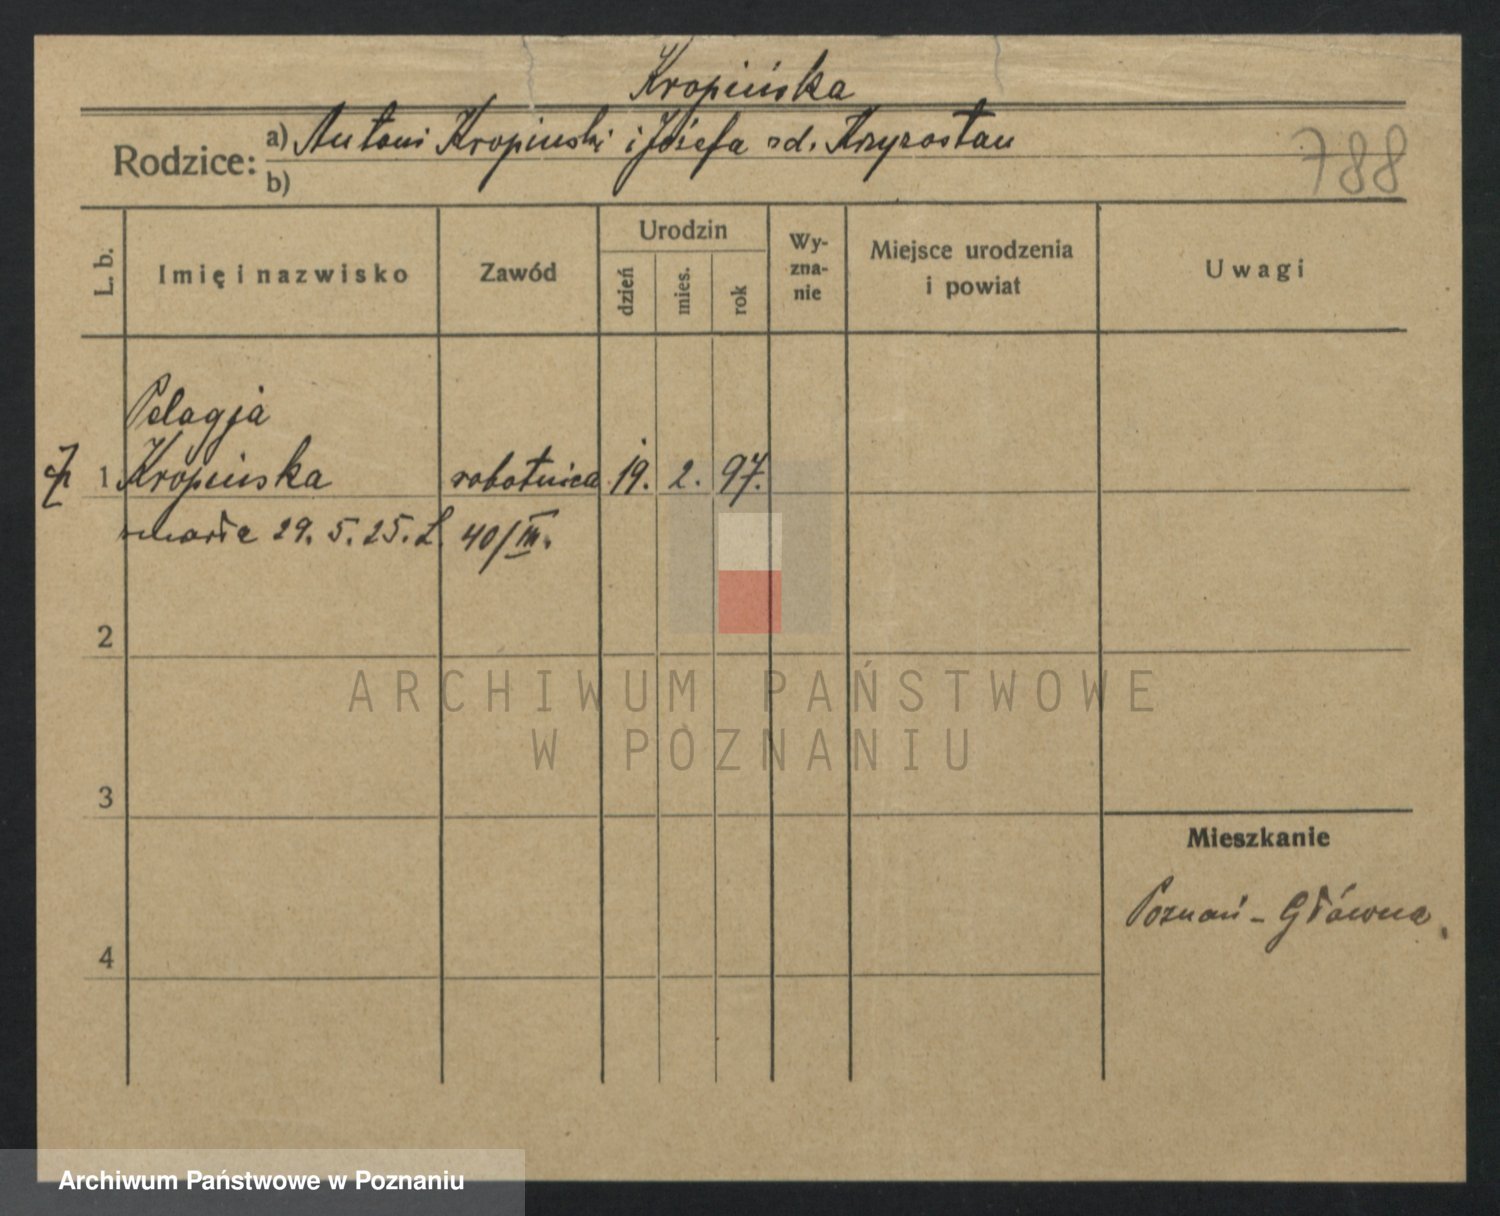 Kropińska
Rodzice: a) Antoni Kropinski i Józefa
b)
788
L. b.
Imię i nazwisko
Zawód
Urodzin
dzień
mies.
rok
Wy-
zna-
nie
Miejsce urodzenia
i powiat
Uwagi
Pelagja
1 Kropińska robotnica 19. 2. 97.
zmarła 29. 5. 25. L. 40/III.
2
3
4
Mieszkanie
Poznań - Główna
ARCHIWUM PAŃSTWOWE
W POZNANIU
Archiwum Państwowe w Poznaniu